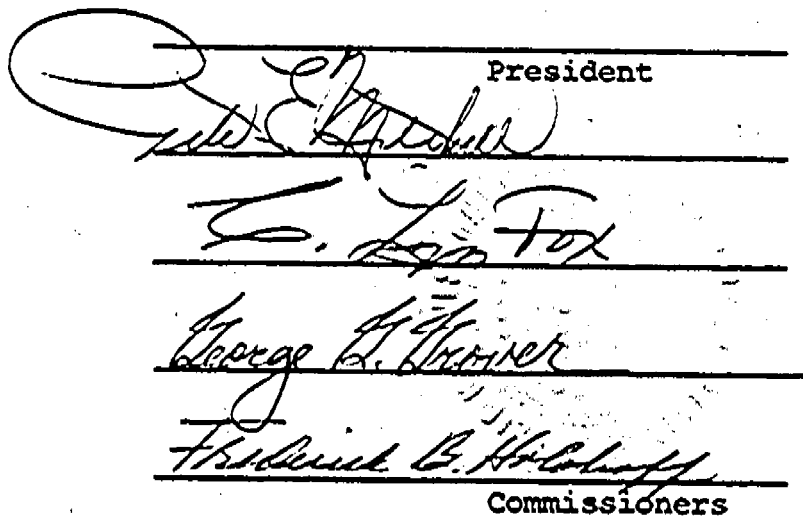 President
E. Mitchell
T. Lyn Fox
George G. Grover
Frederick B. Holoboff
Commissioners